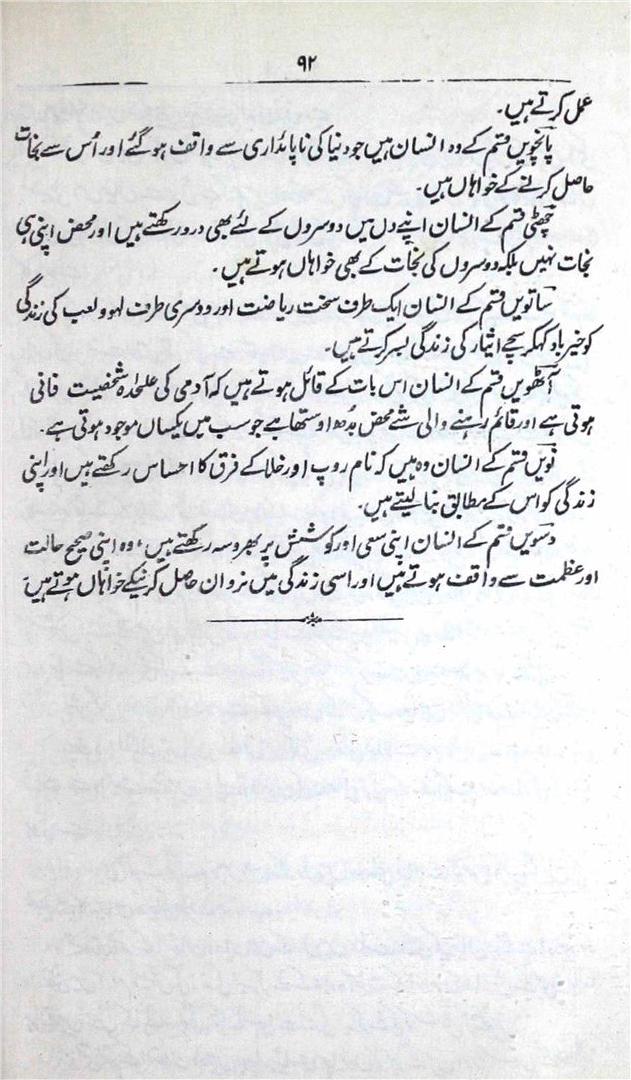 ۹۲
عمل کرتے ہیں۔
پانچویں قسم کے وہ انسان ہیں جو دنیا کی ناپائداری سے واقف ہو گئے اور اُس سے نجات
حاصل کرنے کے خواہاں ہیں۔
چھٹی قسم کے انسان اپنے دل میں دوسروں کے لئے بھی درد رکھتے ہیں اور محض اپنی ہی
نجات نہیں بلکہ دوسروں کی نجات کے بھی خواہاں ہوتے ہیں۔
ساتویں قسم کے انسان ایک طرف سخت ریاضت اور دوسری طرف لہو و لعب کی زندگی
کو خیرباد کہکر سچے ایثار کی زندگی بسر کرتے ہیں۔
آٹھویں قسم کے انسان اس بات کے قائل ہوتے ہیں کہ آدمی کی علحدہ شخصیت فانی
ہوتی ہے اور قائم رہنے والی شے محض بُدھ اوستھا ہے جو سب میں یکساں موجود ہوتی ہے۔
نویں قسم کے انسان وہ ہیں کہ نام روپ اور خلا کے فرق کا احساس رکھتے ہیں اور اپنی
زندگی کو اس کے مطابق بنا لیتے ہیں۔
دسویں قسم کے انسان اپنی سعی اور کوشش پر بھروسہ رکھتے ہیں، وہ اپنی صحیح حالت
اور عظمت سے واقف ہوتے ہیں اور اسی زندگی میں نروان حاصل کرنیکے خواہاں ہوتے ہیں